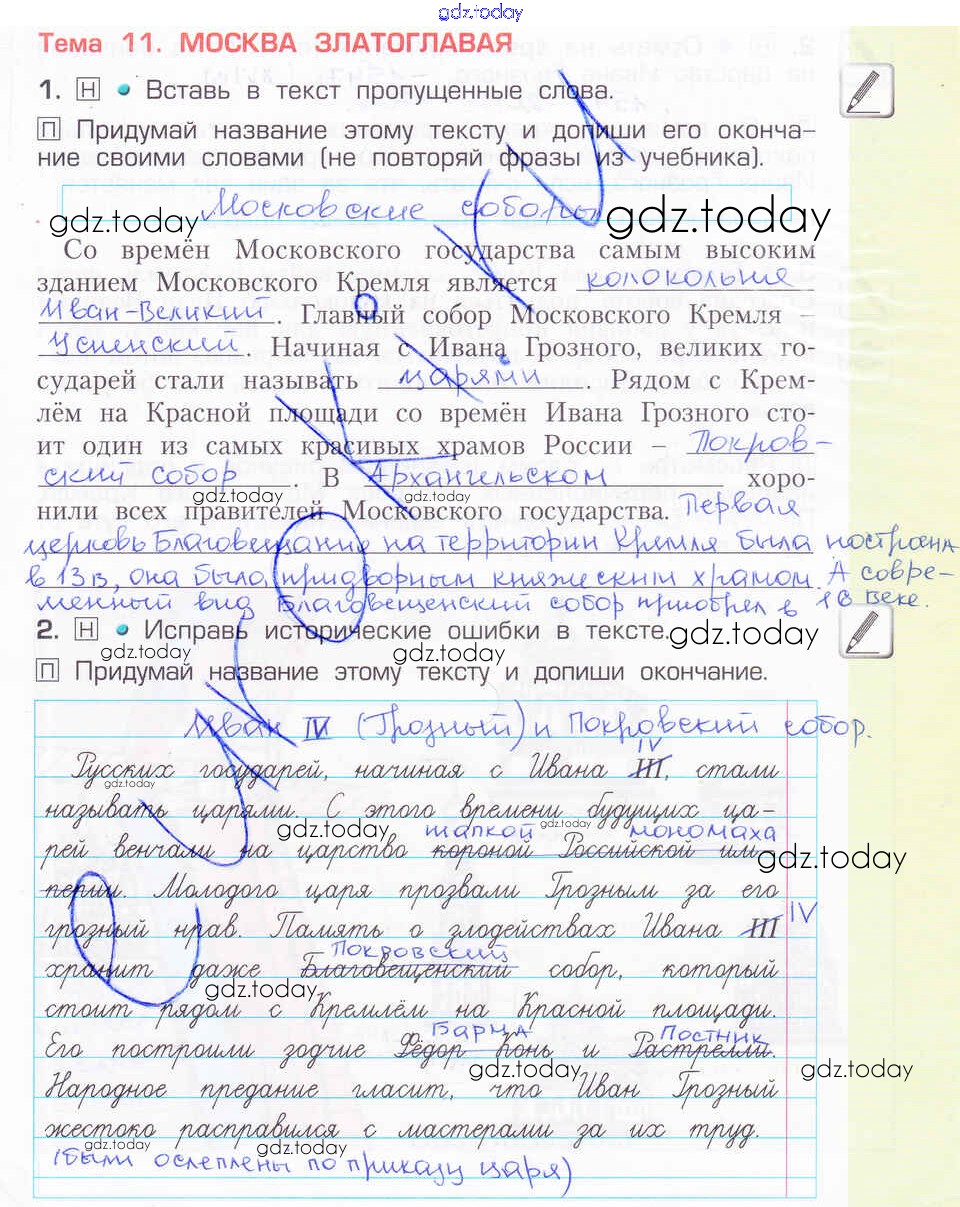 gdz.today
Тема 11. МОСКВА ЗЛАТОГЛАВАЯ
1. Н • Вставь в текст пропущенные слова.
П Придумай название этому тексту и допиши его оконча-
ние своими словами (не повторяй фразы из учебника).
gdz.today Московские соборы gdz.today
Со времён Московского государства самым высоким
зданием Московского Кремля является колокольня
Иван-Великий. Главный собор Московского Кремля –
Успенский. Начиная с Ивана Грозного, великих го-
сударей стали называть царями. Рядом с Крем-
лём на Красной площади со времён Ивана Грозного сто-
ит один из самых красивых храмов России – Покров-
ский собор. В Архангельском хоро-
gdz.today gdz.today
нили всех правителей Московского государства. Первая
церковь Благовещания на территории Кремля была построена
в 13 в, она была придворным княжеским храмом. А совре-
менный вид Благовещенский собор приобрел в 18 веке.
2. Н • Исправь исторические ошибки в тексте. gdz.today
gdz.today gdz.today
П Придумай название этому тексту и допиши окончание.
Иван IV (Грозный) и Покровский собор.
IV
Русских государей, начиная с Ивана III, стали
gdz.today
называть царями. С этого времени будущих ца-
gdz.today шапкой gdz.today мономаха
рей венчали на царство короной Российской им-
gdz.today
перии. Молодого царя прозвали Грозным за его
IV
грозный нрав. Память о злодействах Ивана III
Покровский
хранит даже Благовещенский собор, который
gdz.today
стоит рядом с Кремлём на Красной площади.
Барма Постник
Его построили зодчие Фёдор Конь и Растрелли.
gdz.today gdz.today
Народное предание гласит, что Иван Грозный
жестоко расправился с мастерами за их труд.
gdz.today gdz.today
(были ослеплены по приказу царя)
О УМОКИКУ